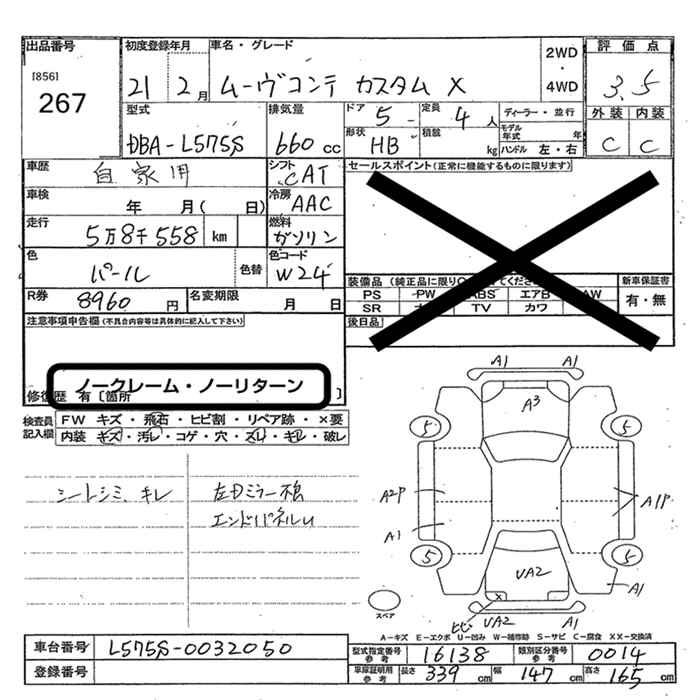 出品番号
[856]
267
初度登録年月
21 2月
車名・グレード
ムーヴコンテ カスタム X
2WD
・
4WD
評価点
3.5
型式
DBA-L575S
排気量
660cc
ドア 5 -
定員 4人
ディーラー・並行
形状 HB
積載 kg
モデル年式 年
ハンドル 左・右
外装 内装
C C
車歴
自家用
シフト
CAT
セールスポイント(正常に機能するものに限ります)
車検
年 月( 日)
冷房
AAC
走行
5万8千558 km
燃料
ガソリン
色
パール
色替
色コード
W24
装備品(純正品に限り
てくださ
新車保証書
PS PW ABS エアB AW
SR TV カワ
有・無
R券
8960円
名変期限
月 日
後日品
注意事項申告欄(不具合内容等は具体的に記入して下さい)
ノークレーム・ノーリターン
修復歴 有〔箇所 〕
検査員記入欄
FW キズ・飛石・ヒビ割・リペア跡・×要
内装 キズ・汚レ・コゲ・穴・スレ・キレ・破レ
シートシミ、キレ
左Dミラー不良
エンドパネルU
A1 A1
A3
5 5
A2P
A1P
A1
5 5
UA2
A1
ヒビ UA2
A1
スペア
A-キズ E-エクボ U-凹み W-補修跡 S-サビ C-腐食 XX-交換済
車台番号
L575S-0032050
登録番号
型式指定番号参考
16138
類別区分番号参考
0014
車庫証明用参考
長さ 339cm
幅 147cm
高さ 165cm